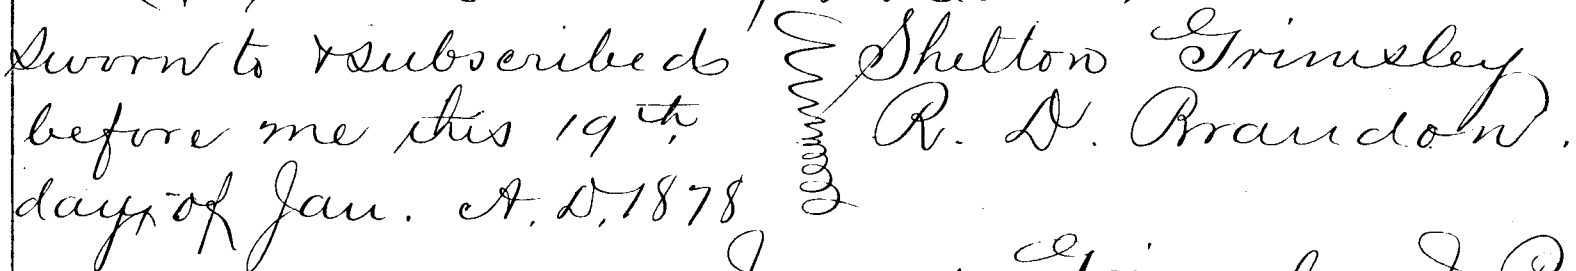 Sworn to & subscribed
before me this 19th.
day of Jan. A. D. 1878
Shelton Grimsley
R. D. Brandon.